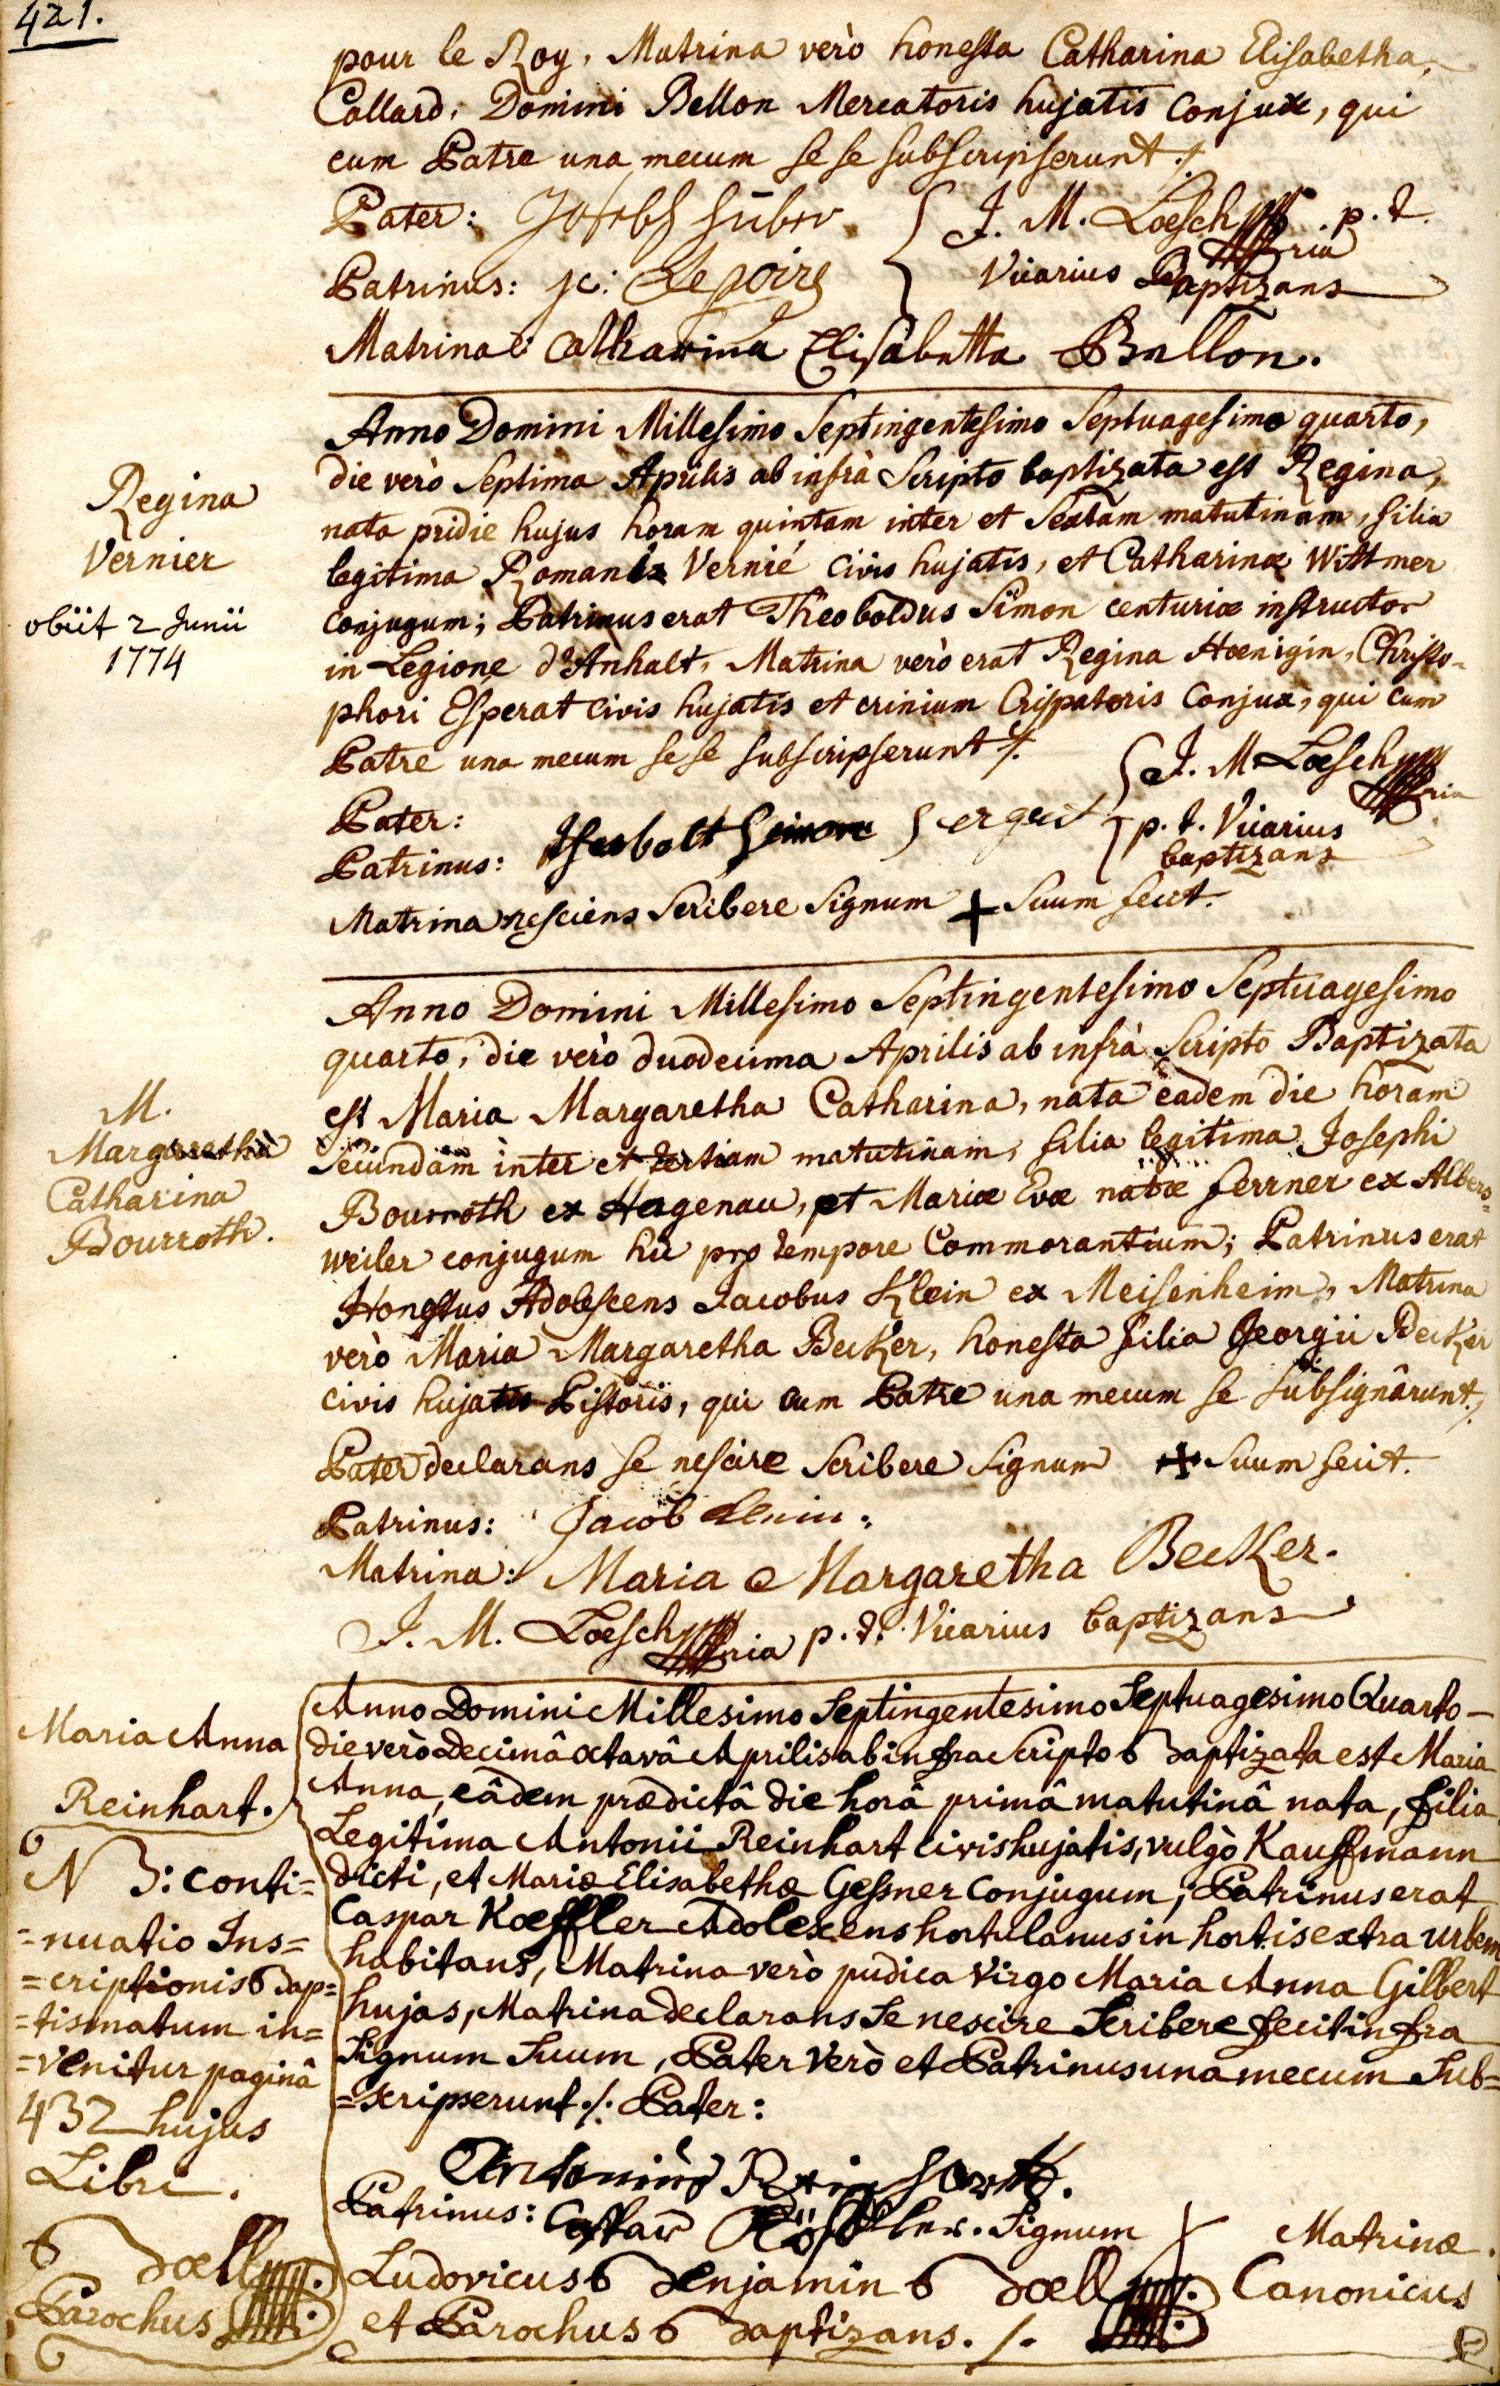 421.
pour le Roy, Matrina verò honesta Catharina Elisabetha
Collard, Domini Bellon Mercatoris hujatis Conjux, qui
cum Patre una mecum se se subscripserunt ./.
Pater: Joseph Huber
J. M. Loesch p. t.
Patrinus: Lepoire
Vicarius Baptizans
Matrina: Catharina Elisabetta Bellon.
Regina
Vernier
obiit 2 Junii
1774
Anno Domini Millesimo Septingentesimo Septuagesimo quarto,
die verò Septima Aprilis ab infrà Scripto baptizata est Regina,
nata pridie hujus horam quintam inter et Sextam matutinam, filia
legitima Romani Vernié Civis hujatis, et Catharinæ Wittmer
conjugum; Patrinus erat Theobaldus Simon centuriæ instructor
in Legione d'Anhalt, Matrina verò erat Regina Hœnigin, Christo=
phori Esperat civis hujatis et crinium Crispatoris Conjux, qui cum
Patre una mecum se se subscripserunt ./.
J. M. Loesch
Pater:
p. t. Vicarius
baptizans
Patrinus: Theobalt Simon Sergent
Matrina nesciens Scribere Signum + Suum fecit.
M.
Margaretha
Catharina
Bourroth.
Anno Domini Millesimo Septingentesimo Septuagesimo
quarto, die verò duodecima Aprilis ab infrà Scripto Baptizata
est Maria Margaretha Catharina, nata eadem die horam
Secundam inter et tertiam matutinam, filia legitima Josephi
Bourroth ex Hagenau, et Mariæ Evæ natæ ferrner ex Albers=
weiler conjugum hic pro tempore Commorantium; Patrinus erat
Honestus Adolescens Jacobus Klein ex Meisenheim, Matrina
verò Maria Margaretha Becker, honesta filia Georgii Becker
civis hujatis Pistoris, qui cum Patre una mecum se subsignârunt ./.
Pater declarans se nescire Scribere Signum + Suum fecit.
Patrinus: Jacob Klein.
Matrina: Maria Margaretha Becker.
J. M. Loesch p. t. Vicarius baptizans
Maria Anna
Reinhart.
NB: conti=
=nuatio Ins=
=criptionis Bap=
=tismatum in=
=venitur paginâ
432 hujus
Libri.
Boell
Parochus
Anno Domini Millesimo Septingentesimo Septuagesimo Quarto
die verò Decimâ octavâ Aprilis ab infra Scripto Baptizata est Maria
Anna, eâdem prædictâ die horâ primâ matutinâ nata, filia
Legitima Antonii Reinhart civis hujatis, vulgò Kauffmann
dicti, et Mariæ Elisabethæ Geßner Conjugum; Patrinus erat
Caspar Kœffler Adolexens hortulanus in hortis extra urbem
habitans, Matrina verò pudica virgo Maria Anna Gilbert
hujas, Matrina declarans Se nescire Scribere fecit infra
Signum Suum, Pater verò et Patrinus una mecum Sub=
=scripserunt ./. Pater:
Antonius Reinhart.
Patrinus: Caspar Köffler. Signum X Matrinæ.
Ludovicus Benjamin Boell Canonicus
et Parochus Baptizans. /.